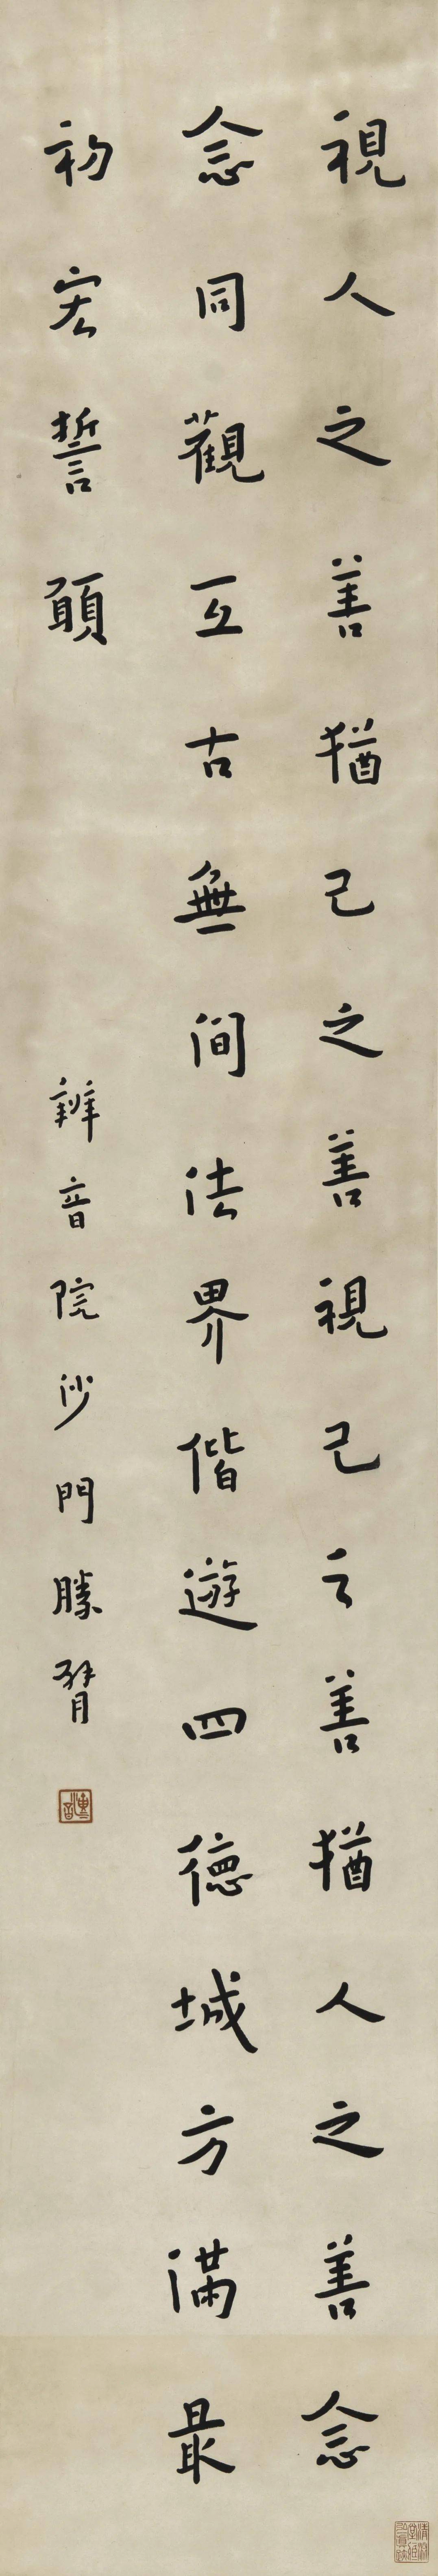 視人之善猶己之善視己之善猶人之善念
念同觀亙古無間法界偕遊四德城方滿最
初宏誓願
辨音院沙門勝臂
演音